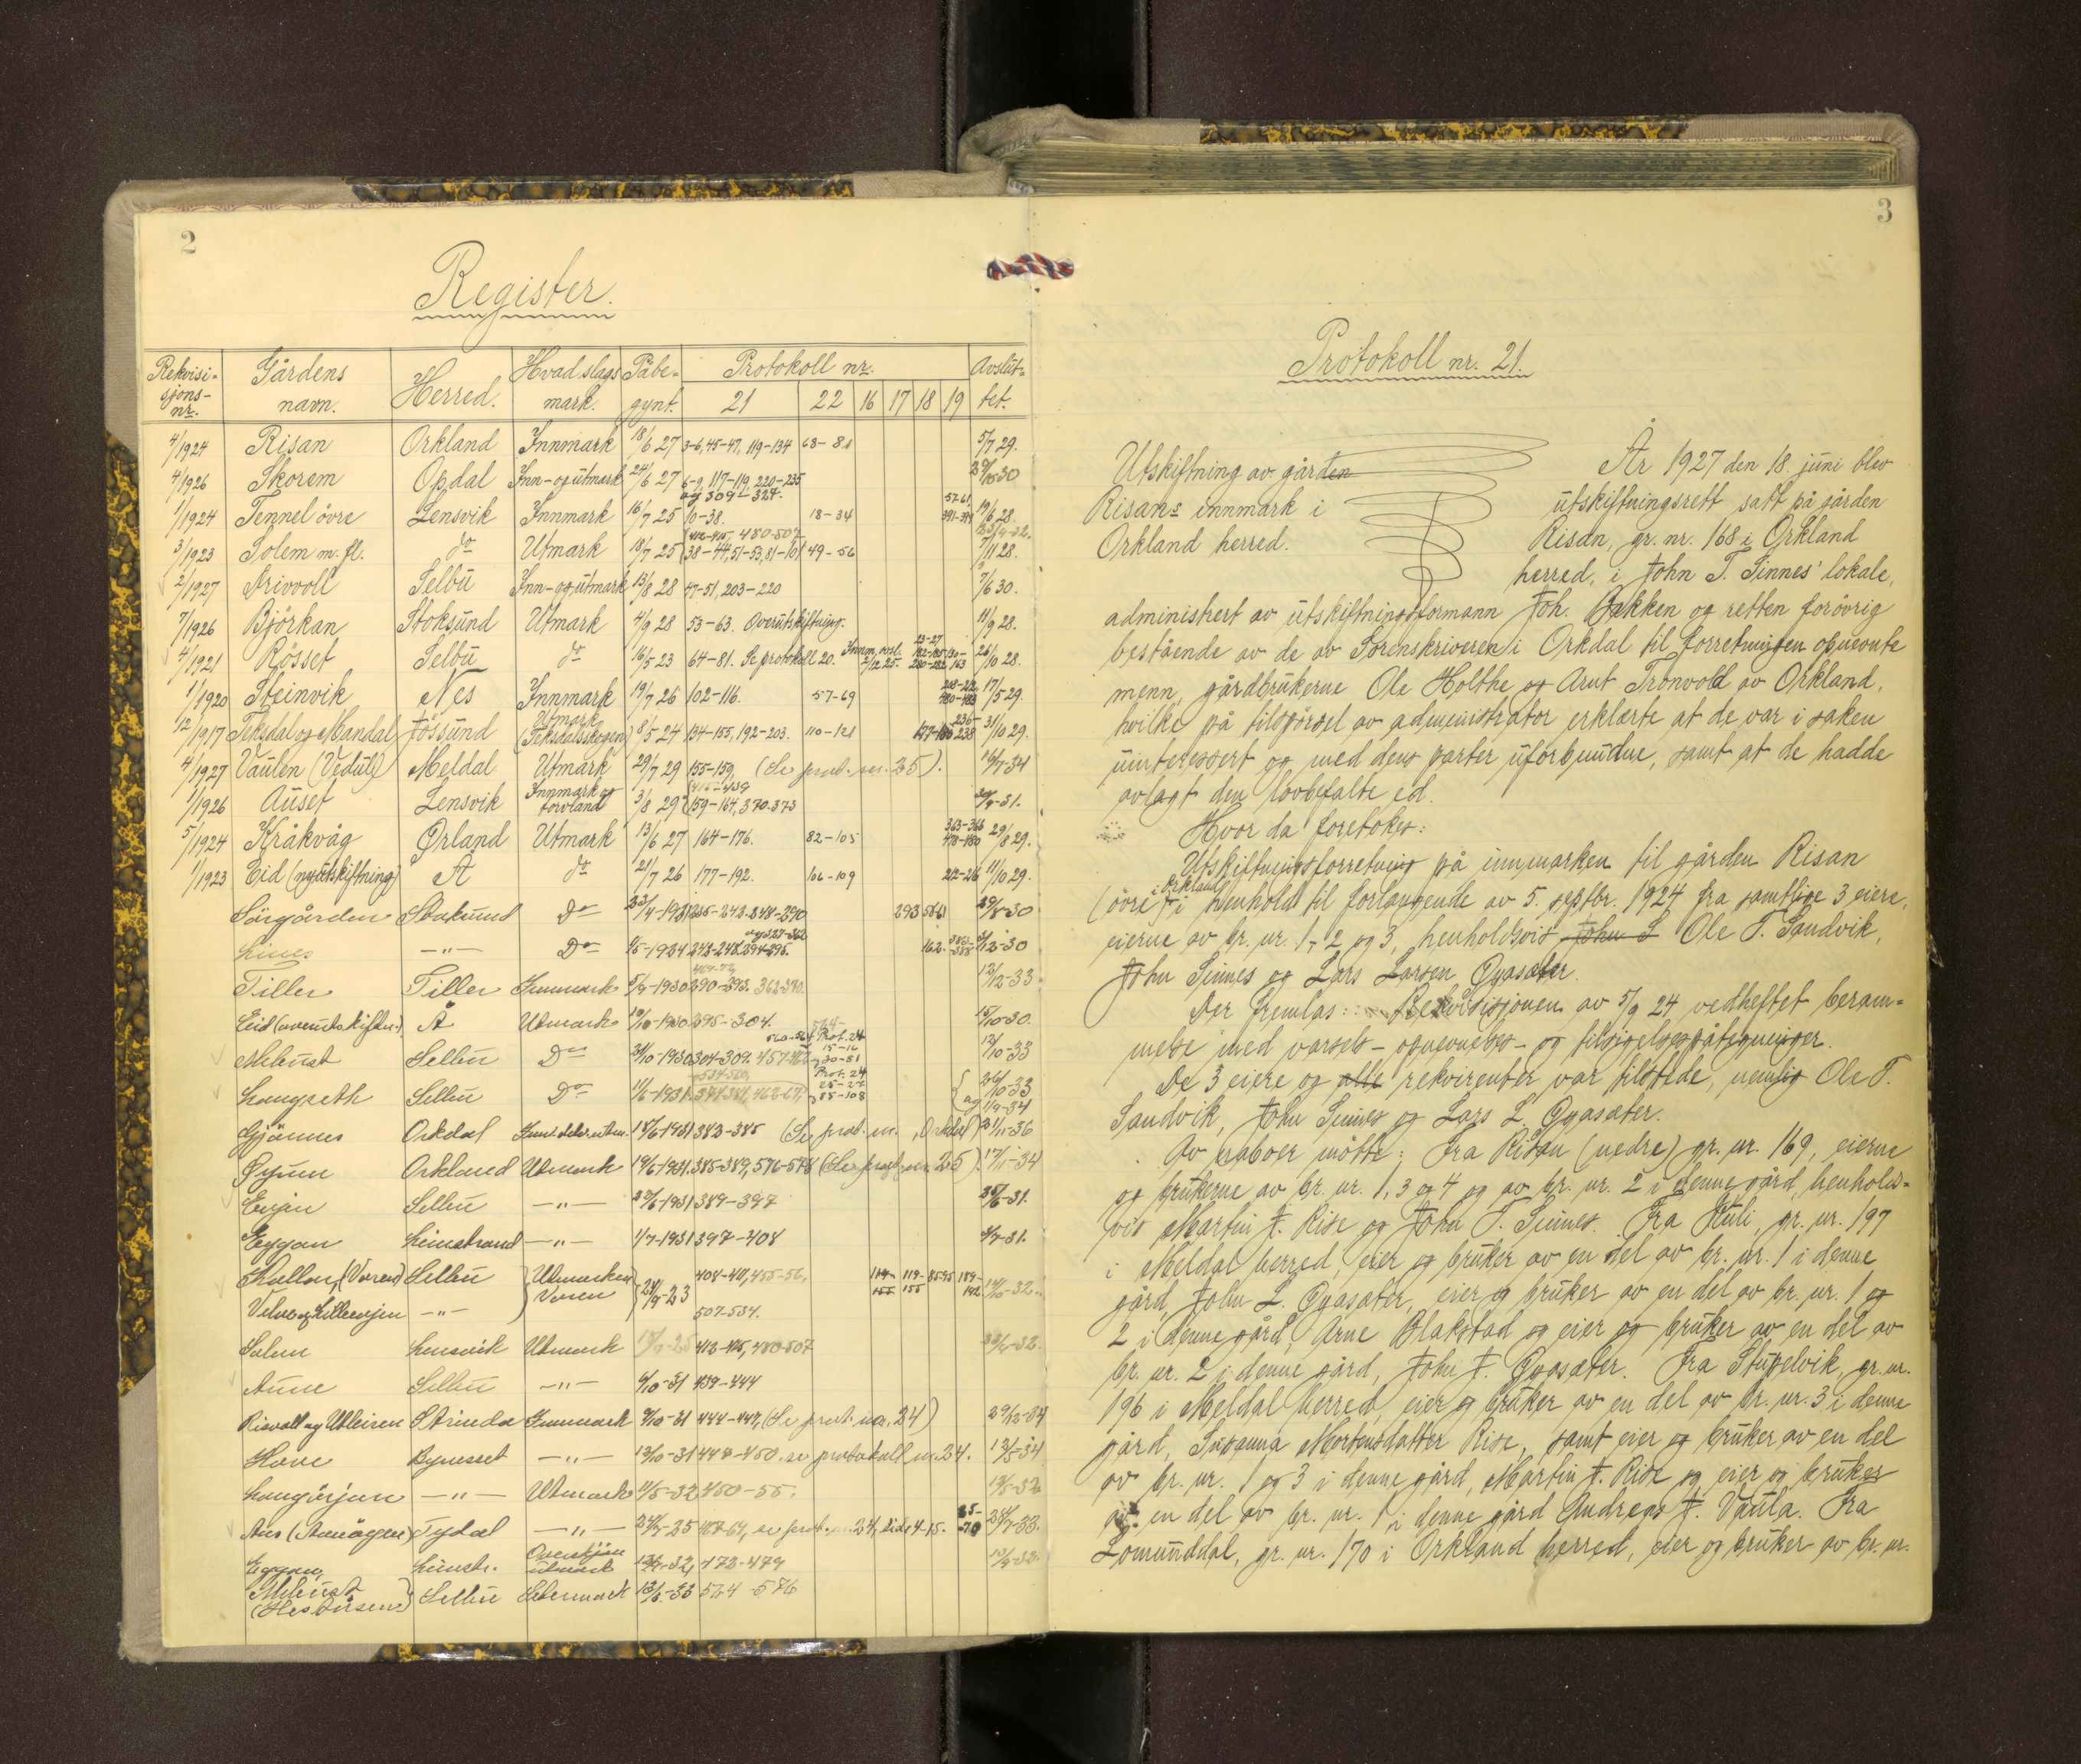 2
Register.
Rekvisi-sjons-nr. Gårdens navn. Herred. Hvad slags mark. Påbe-gynt. Protokoll nr. 21 22 16 17 18 19 Avslut-tet.
4/1924 Risan Orkland Innmark 18/6 27 3-6, 45-47, 119-134 68-81 5/7 29.
4/1926 Skorem Opdal Inn- og utmark 24/6 27 6-9, 117-119, 220-235 og 309-324. 30
1/1924 Tennel övre Lensvik Innmark 16/7 25 10-38. 18-34 57-61 391-394 19/6 28.
3/1923 Solem m. fl. do Utmark 18/7 25 38-44, 51-53, 81-101 412-415, 480-507 49-56 7/11 28.
2/1927 Arivoll Selbu Inn- og utmark 13/8 28 47-51, 203-220 7/6 30.
7/1926 Björkan Stoksund Utmark 4/9 28 53-63. Overutskiftning. 11/9 28.
4/1921 Rösset Selbu do 16/5 23 64-81. Se protokoll 20. 26/10 28.
1/1920 Steinvik Nes Innmark 19/7 26 102-116. 57-69 17/5 29.
12/1917 Teksdal og Mandal Jössund Utmark (Teksdalsskogen) 8/5 24 134-155, 192-203. 110-121 236-238 31/10 29.
4/1927 Vaulen (Vedul) Meldal Utmark 29/7 29 155-159, (Se prot. nr. 25). 16/7-34
1/1926 Auset Lensvik Innmark og torvland 3/8 29 159-164, 370-373 416-439 -31.
5/1924 Kråkvåg Ørland Utmark 13/6 27 164-176. 82-105 363-366 478-480 29/8 29.
1/1923 Eid (nyutskiftning) Å do 21/7 26 177-192. 106-109 22-26 11/10 29.
Sörgården Stoksund Do -1931 235-243. 248-290 293 29/8-30
Lines -"- Do -1924 243-248. 294-295. og 327-362 162- 383-388 -30
Tiller Tiller Innmark -1930 290-293. 362-370. 12/12-33
Eid (overutskiftn.) Å Utmark 10/10-1930 295-304. 15/10-30.
Melhust Selbu Do 21/10-1930 304-309. 457-462 560-564 Prot. 24 15-16 30-81 12/10-33
Langseth Selbu Do 11/6-1931 374-381, 462-67, Prot. 24 25-27 85-108 26/10-33 og 1/9-34
Gjönnes Orkdal 18/6-1931 382-385 (Se prot. nr. Orkdal) -36
Orkland Utmark 19/6-1931 385-389, 576-578 (Se prot. nr. 25). 17/11-34
Evjen Selbu -"- 22/6-1931 389-397 25/6-31.
Eggan Leinstrand -"- 1/7-1931 397-408 -31.
Kallar (Voren) Selbu Utmarken Voren 24/9-23 408-411, 455-56, 119-155 189-192 -32.
-"- 507-534.
Solem Lensvik Utmark 412-415, 480-507 -32.
Aune Selbu -"- 6/10-31 439-444
Risvoll og Utleiren Strinda Innmark 9/10-31 444-447, (Se prot. nr. 24) 29/12-34
Hove Bynesset -"- 13/10-31 448-450. se protokoll nr. 24. 12/5-34
Langörjan -"- Utmark 11/5-32 450-55. 12/5-32
Aas (Aunögen) Tydal -"- 467-69, se prot. nr. 24, side 4-15. 65-70 24/7-33.
Eggan Leinstr. Overskjönn utmark -32 472-479
Melhust Selbu Setermark 12/8-33 564-576
3
Protokoll nr. 21.
Utskiftning av gården
Risans innmark i
Orkland herred.
År 1927 den 18. juni blev
utskiftningsrett satt på gården
Risan, gr. nr. 168 i Orkland
herred, i John T. Sinnes' lokale,
administrert av utskiftningsformann Joh. Bakken og retten forövrig
bestående av de av Sorenskriveren i Orkdal til forretningen opnevnte
menn, gårdbrukerne Ole Holthe og Arnt Tronvold av Orkland,
hvilke på tilspörsel av administrator erklærte at de var i saken
uinteressert og med dens parter uforbundne, samt at de hadde
avlagt den lovbefalte ed.
Hvor da foretokes:
Utskiftningsforretning på innmarken til gården Risan
(övre) i Orkland i henhold til forlangende av 5. septbr. 1924 fra samtlige 3 eiere,
eierne av br. nr. 1, 2 og 3, henholdsvis John S Ole T. Sandvik,
John Sinnes og Lars Larsen Ogasæter.
Der fremlas: Rekvisisjonen av 5/9 24 vedheftet beram-
melse med varsels- opnevnelses- og tilsigelsespåtegninger.
De 3 eiere og alle rekvirenter var tilstede, nemlig Ole T.
Sandvik, John Sinnes og Lars L. Ogasæter.
Av naboer mötte: Fra Risan (nedre) gr. nr. 169, eierne
og brukerne av br. nr. 1, 3 og 4 og av br. nr. 2 i denne gård, henholds-
vis Martin J. Rise og John T. Sinnes. Fra Kuli, gr. nr. 197
i Meldal herred, eier og bruker av en del av br. nr. 1 i denne
gård, John L. Ogasæter, eier og bruker av en del av br. nr. 1 og
2 i denne gård, Arne Blakstad og eier og bruker av en del av
br. nr. 2 i denne gård, John J. Ogasæter. Fra Stupelvik, gr. nr.
196 i Meldal herred, eier og bruker av en del av br. nr. 3 i denne
gård, Susanna Mortensdatter Rise, samt eier og bruker av en del
av br. nr. 1 og 3 i denne gård, Martin J. Rise og eier og bruker
av en del av br. nr. 1 i denne gård Andreas J. Vaula. Fra
Lomunddal, gr. nr. 170 i Orkland herred, eier og bruker av br. nr.